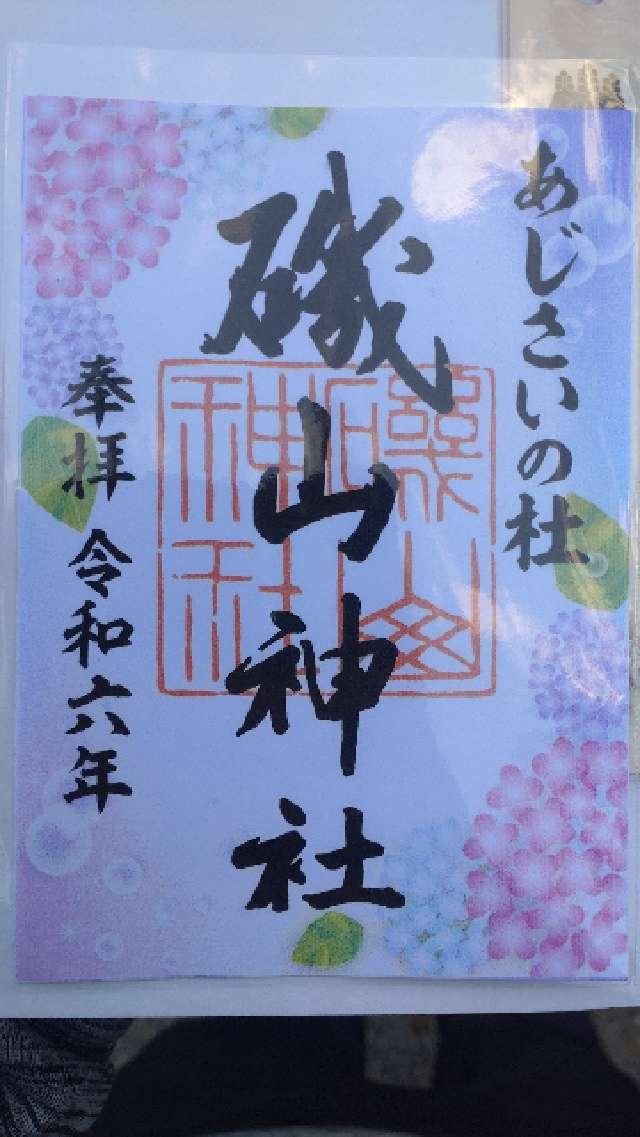 あじさいの杜
磯山神社
奉拝 令和六年